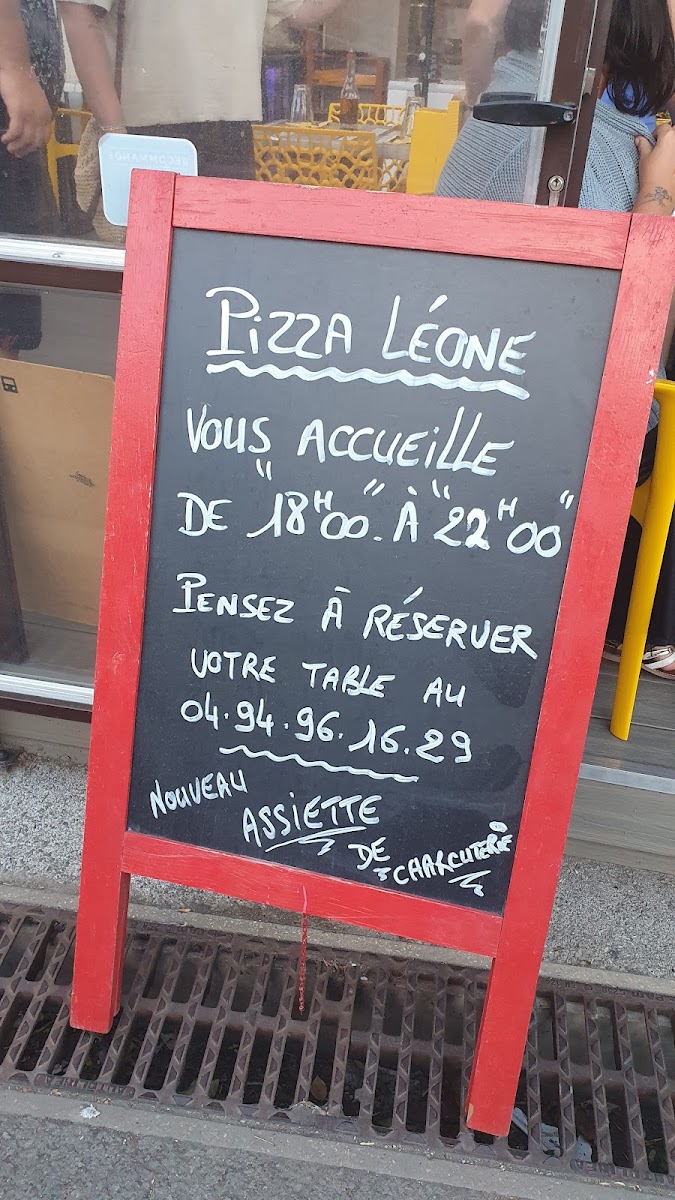 PIZZA LÉONE
VOUS ACCUEILLE
DE "18H00". À "22H00"
PENSEZ À RÉSERVER
VOTRE TABLE AU
04.94.96.16.29
NOUVEAU
ASSIETTE
DE CHARCUTERIE